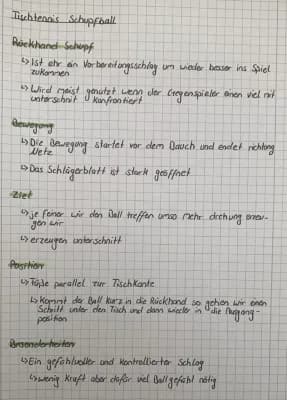 Tischtennis Schupfball
Rückhand Schupf
↳ Ist ehr ein Vorbereitungsschlag um wieder besser ins Spiel
zukommen
↳ Wird meist genutzt wenn der Gegenspieler einen viel mit
unterschnit konfrontiert
Bewegung
↳ Die Bewegung startet vor dem Bauch und endet richtong
Netz
↳ Das Schlägerblatt ist stark geöffnet
Ziel
↳ je feiner wir den Ball treffen umso mehr drehung erzeu-
gen wir
↳ erzeugen unterschnitt
Position
↳ Füße parallel zur Tischkante
↳ Kommt der Ball kurz in die Rückhand so gehen wir einen
Schritt unter den Tisch und dann wieder in die Ausgangs-
position
Besonderheiten
↳ Ein gefühlvoller und kontrollierter Schlag
↳ wenig Kraft aber dafür viel Ballgefühl nötig